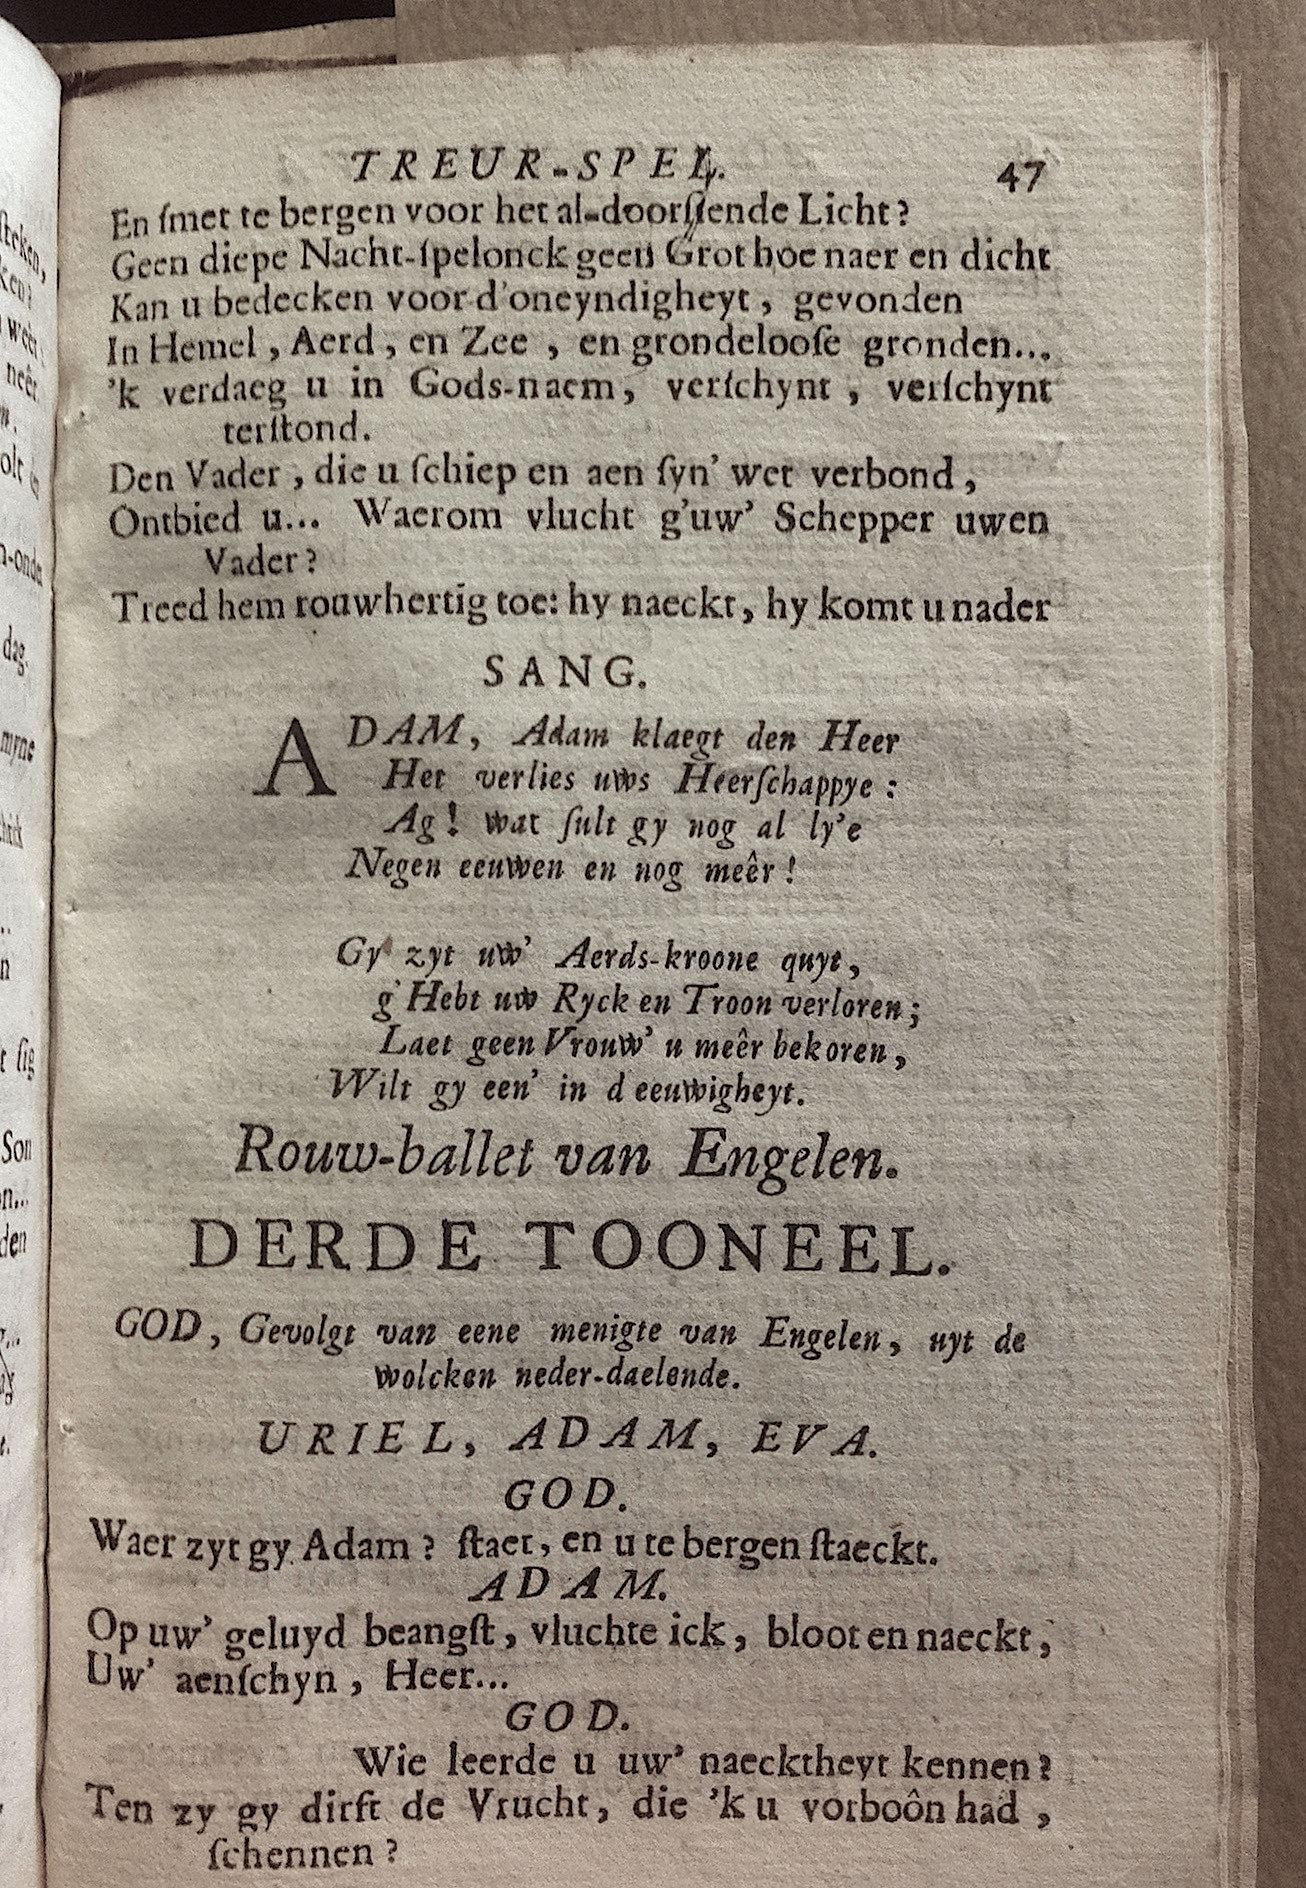 TREUR-SPEL. 47
En ſmet te bergen voor het al-doorſiende Licht?
Geen diepe Nacht-ſpelonck geen Grot hoe naer en dicht
Kan u bedecken voor d'oneyndigheyt, gevonden
In Hemel, Aerd, en Zee, en grondelooſe gronden...
'k verdaeg u in Gods-naem, verſchynt, verſchynt
terſtond.
Den Vader, die u ſchiep en aen ſyn' wet verbond,
Ontbied u... Waerom vlucht g'uw' Schepper uwen
Vader?
Treed hem rouwhertig toe: hy naeckt, hy komt u nader
SANG.
ADAM, Adam klaegt den Heer
Het verlies uws Heerſchappye:
Ag! wat ſult gy nog al ly'e
Negen eeuwen en nog meêr!
Gy zyt uw' Aerds-kroone quyt,
g'Hebt uw Ryck en Troon verloren;
Laet geen Vrouw' u meêr bekoren,
Wilt gy een' in d'eeuwigheyt.
Rouw-ballet van Engelen.
DERDE TOONEEL.
GOD, Gevolgt van eene menigte van Engelen, uyt de
wolcken neder-daelende.
URIEL, ADAM, EVA.
GOD.
Waer zyt gy Adam? ſtaet, en u te bergen ſtaeckt.
ADAM.
Op uw' geluyd beangſt, vluchte ick, bloot en naeckt,
Uw' aenſchyn, Heer...
GOD.
Wie leerde u uw' naecktheyt kennen?
Ten zy gy dirft de Vrucht, die 'k u vorboôn had,
ſchennen?